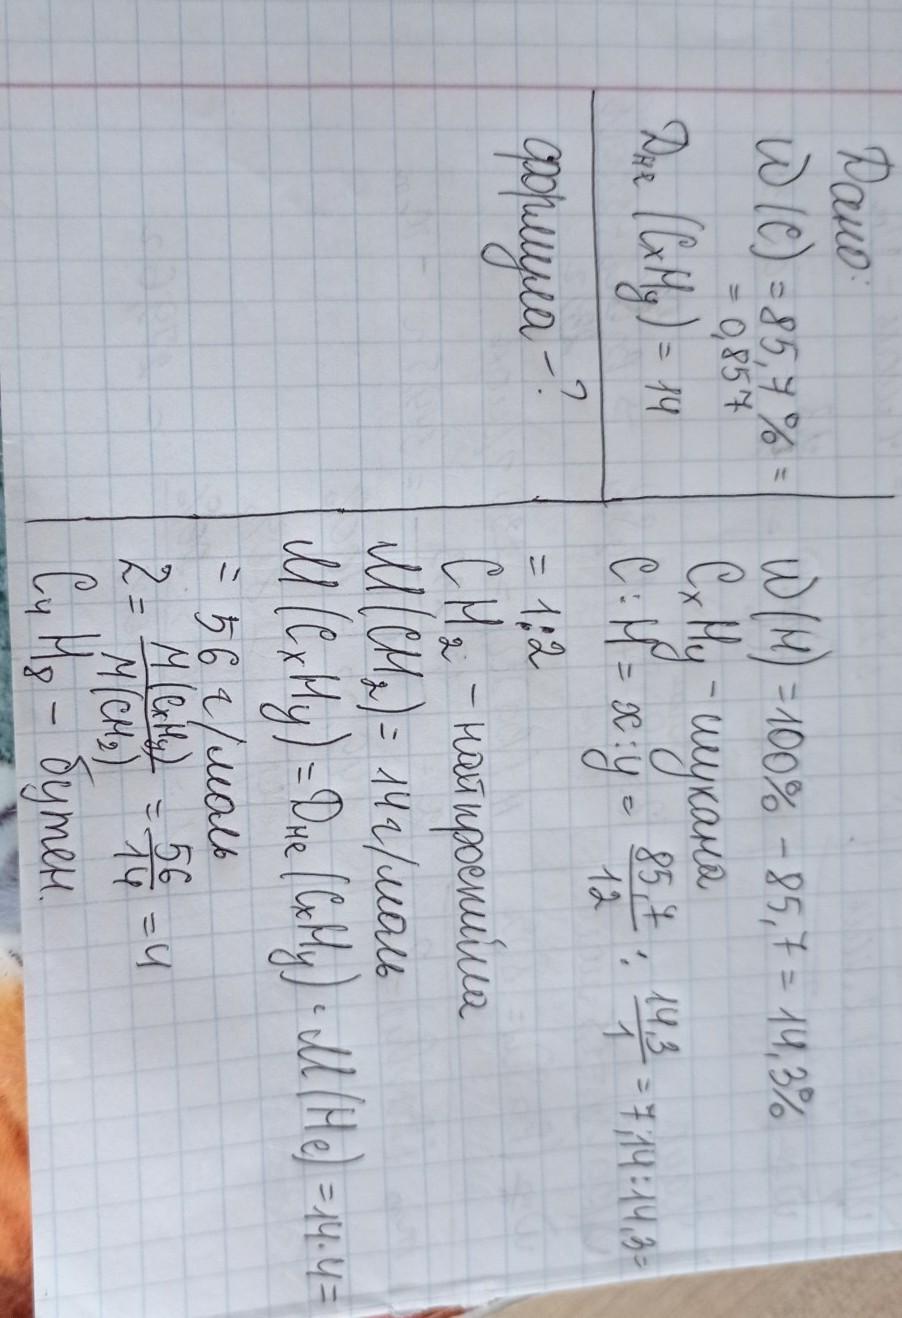 Дано:
W(C) = 85,7% =
= 0,857
Dне (CxHy) = 14
формула - ?
W(H) = 100% - 85,7 = 14,3%
CxHy - шукана
C : H = x : y = 85,7/12 : 14,3/1 = 7,14 : 14,3 =
= 1:2
CH2 - найпростіша
M(CH2) = 14 г/моль
M(CxHy) = Dне (CxHy) · M(He) = 14 · 4 =
= 56 г/моль
2 = M(CxHy)/M(CH2) = 56/14 = 4
C4H8 - бутен.